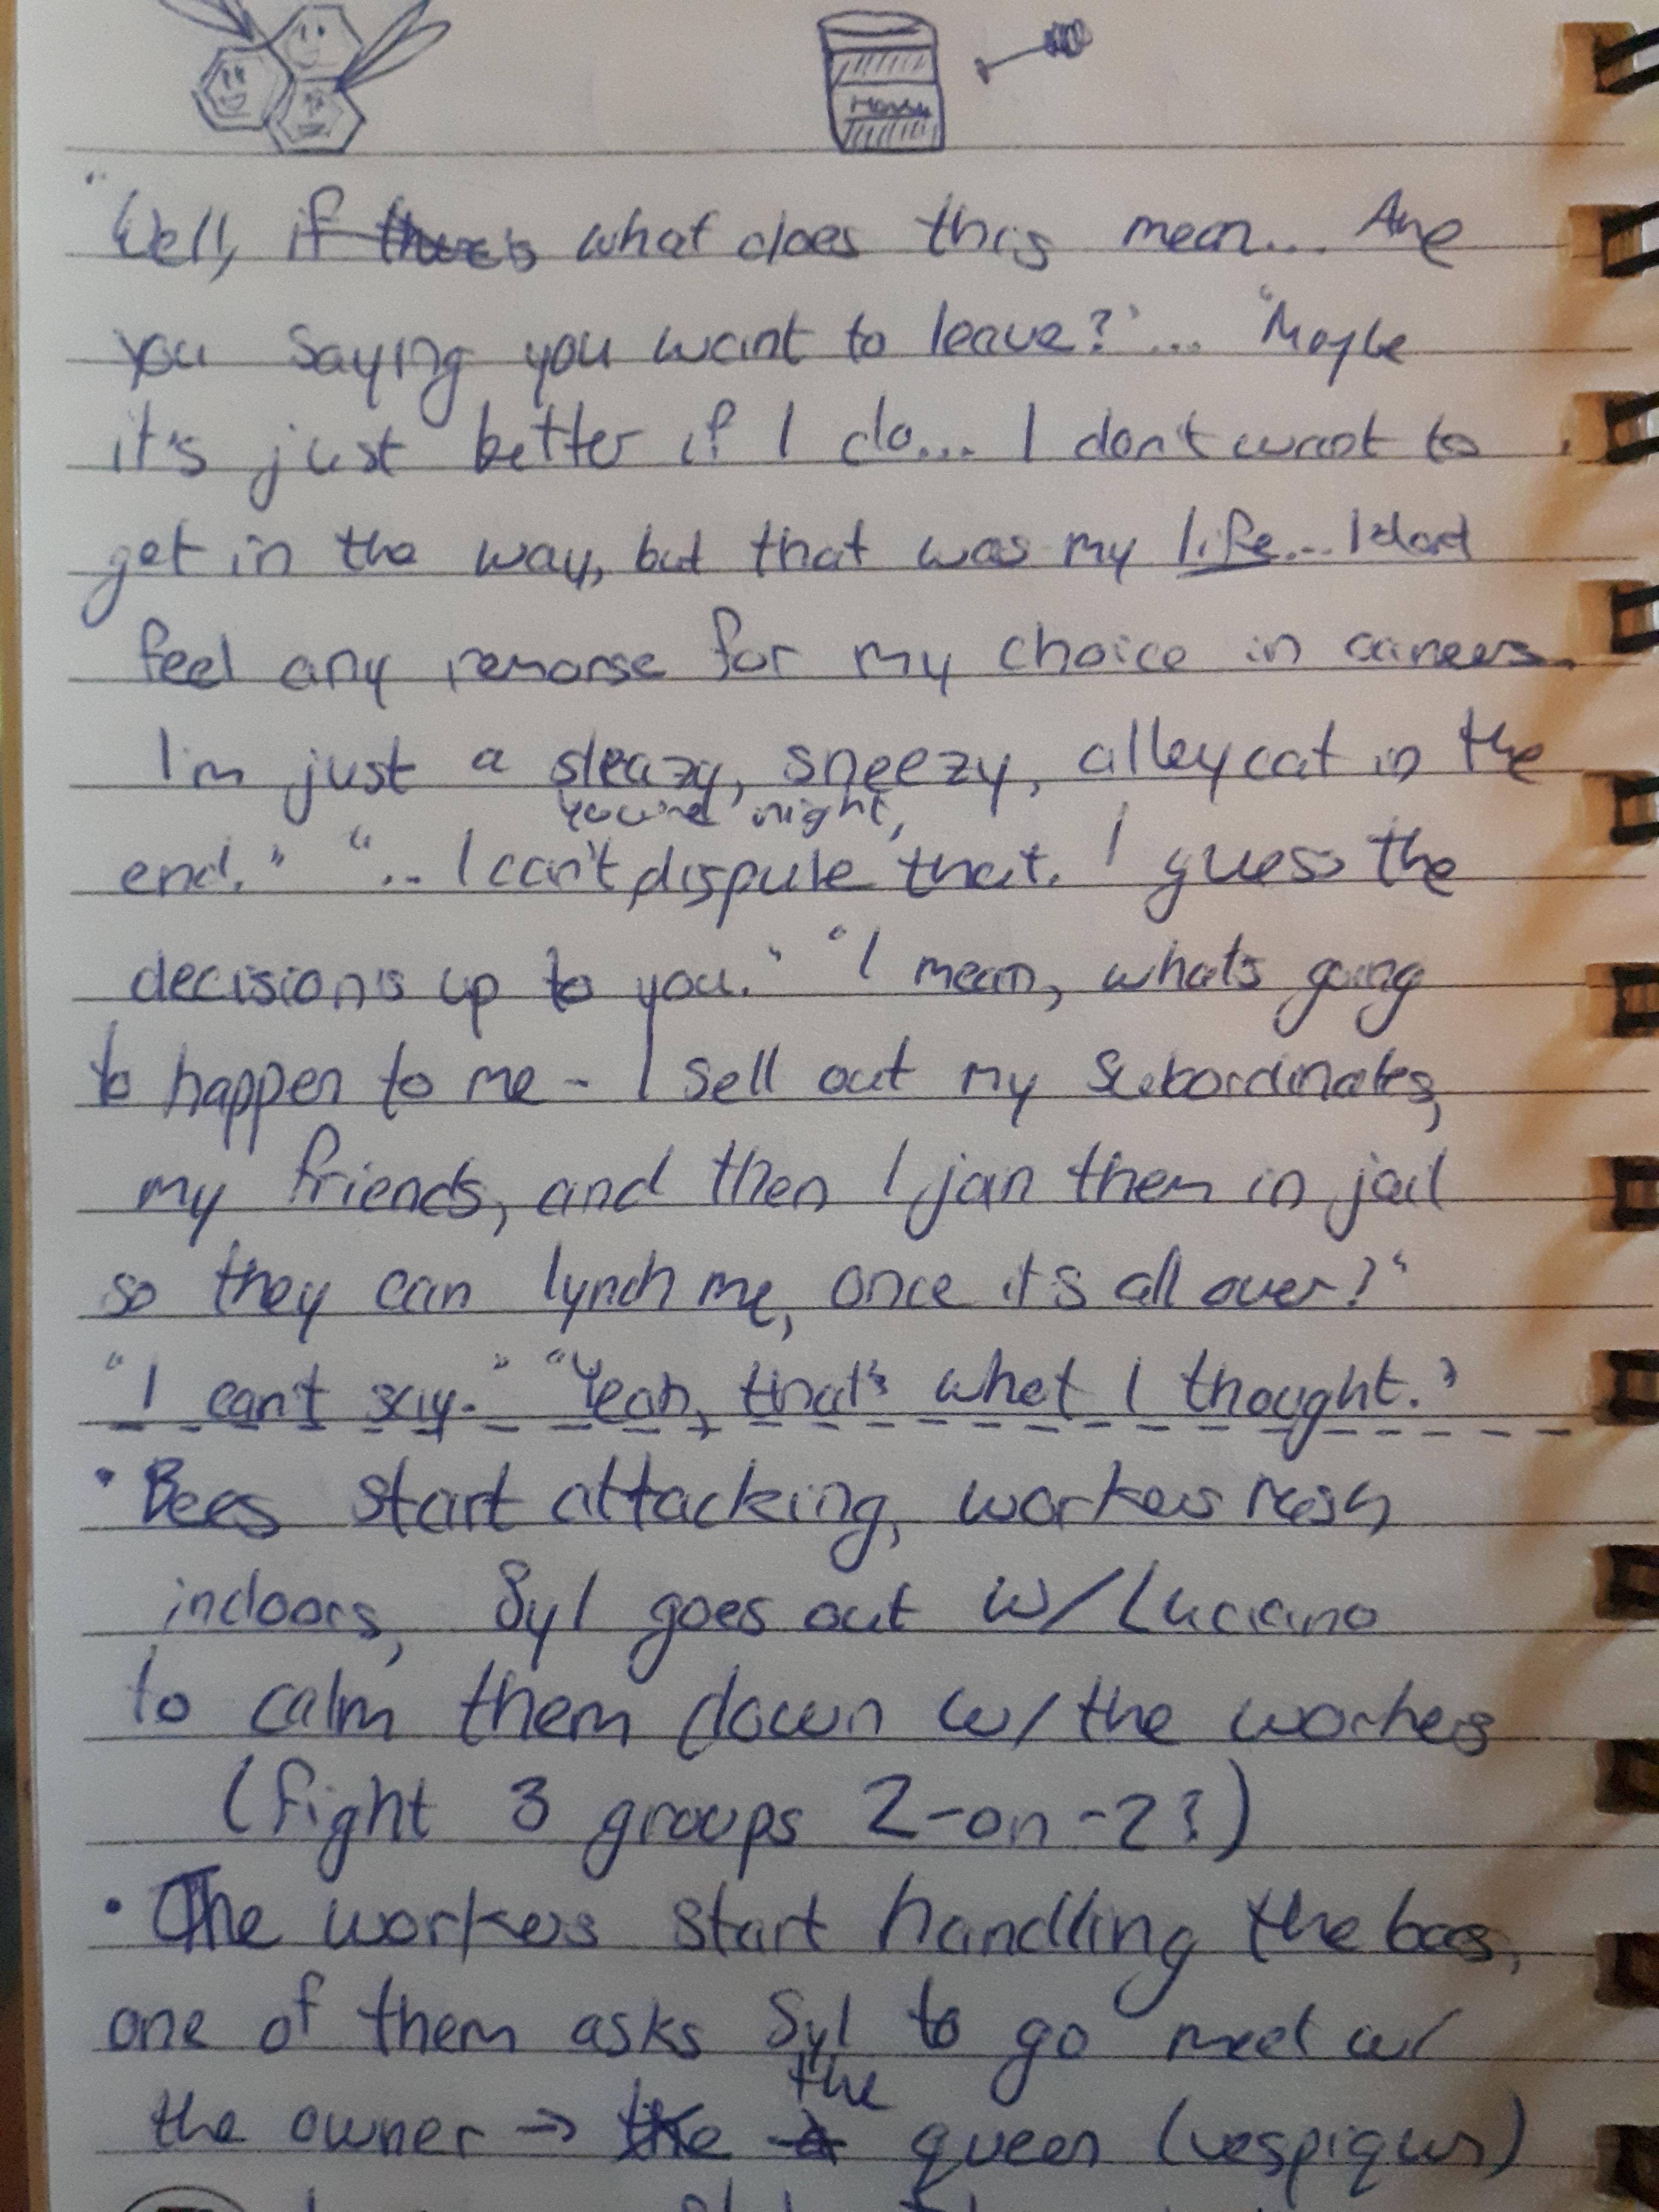 Honey
"Well, if there's what does this mean... Are
you saying you want to leave?"... "Maybe
it's just better if I do... I don't want to
get in the way, but that was my life... I dont
feel any remorse for my choice in careers.
I'm just a sleazy, sneezy, alleycat in the
you're right,
end." "... I can't dispute that. I guess the
decision's up to you." "I mean, whats going
to happen to me - I sell out my subordinates,
my friends, and then I join them in jail
so they can lynch me, once it's all over?"
"I can't say." "Yeah, that's what I thought."
• Bees start attacking, workers rush
indoors, Syl goes out w/ Luciano
to calm them down w/ the workers
(fight 3 groups 2-on-2?)
• The workers start handling the bees,
one of them asks Syl to go meet w/
the
the owner → the a queen (vespiquen)